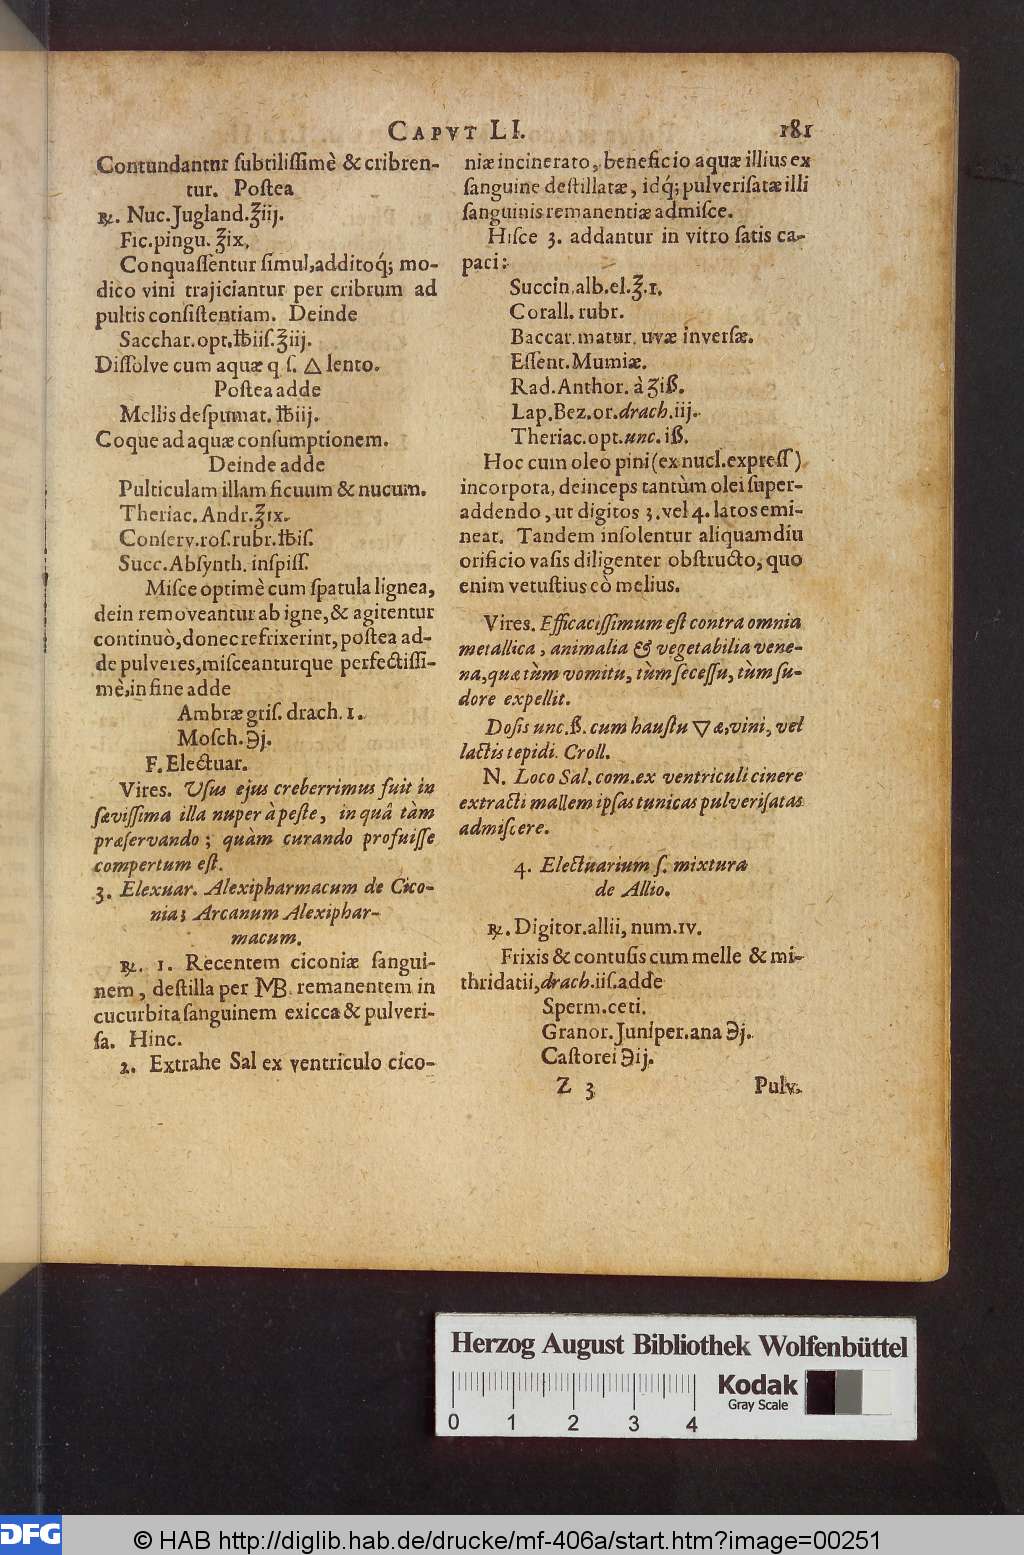 CAPVT LI. 181
Contundantur ſubtiliſſimè & cribren-
tur. Poſtea
℞. Nuc. Jugland. ℥iij.
Fic. pingu. ℥ix,
Conquaſſentur ſimul, additoq́; mo-
dico vini trajiciantur per cribrum ad
pultis conſiſtentiam. Deinde
Sacchar. opt. ℔iiſ. ℥iij.
Diſſolve cum aquæ q ſ. 🜂 lento.
Poſtea adde
Mellis deſpumat. ℔iij.
Coque ad aquæ conſumptionem.
Deinde adde
Pulticulam illam ficuum & nucum.
Theriac. Andr. ℥ix.
Conſerv. roſ. rubr. ℔iſ.
Succ. Abſynth. inſpiſſ.
Miſce optimè cum ſpatula lignea,
dein removeantur ab igne, & agitentur
continuò, donec refrixerint, poſtea ad-
de pulveres, miſceanturque perfectiſſi-
mè, in fine adde
Ambræ griſ. drach. 1.
Moſch. ℈j.
F. Electuar.
Vires. Uſus ejus creberrimus fuit in
ſæviſſima illa nuper à peſte, in quâ tàm
præſervando; quàm curando profuiſſe
compertum eſt.
3. Elexuar. Alexipharmacum de Cico-
nia; Arcanum Alexiphar-
macum.
℞. 1. Recentem ciconiæ ſangui-
nem, deſtilla per MB. remanentem in
cucurbita ſanguinem exicca & pulveri-
ſa. Hinc.
2. Extrahe Sal ex ventriculo cico-
niæ incinerato, beneficio aquæ illius ex
ſanguine deſtillatæ, idq́; pulveriſatæ illi
ſanguinis remanentiæ admiſce.
Hiſce 3. addantur in vitro ſatis ca-
paci:
Succin. alb. el. ℥.1.
Corall. rubr.
Baccar. matur. uvæ inverſæ.
Eſſent. Mumiæ.
Rad. Anthor. à ʒiß.
Lap. Bez. or. drach. iij.
Theriac. opt. unc. iß.
Hoc cum oleo pini (ex nucl. expreſſ)
incorpora, deinceps tantùm olei ſuper-
addendo, ut digitos 3. vel 4. latos emi-
neat. Tandem inſolentur aliquamdiu
orificio vaſis diligenter obſtructo, quo
enim vetuſtius eò melius.
Vires. Efficaciſſimum eſt contra omnia
metallica, animalia & vegetabilia vene-
na, quæ tùm vomitu, tùm ſeceſſu, tùm ſu-
dore expellit.
Doſis unc. ß. cum hauſtu 🜄 æ, vini, vel
lactis tepidi. Croll.
N. Loco Sal. com. ex ventriculi cinere
extracti mallem ipſas tunicas pulveriſatas
admiſcere.
4. Electuarium ſ. mixtura
de Allio.
℞. Digitor. allii, num. IV.
Frixis & contuſis cum melle & mi-
thridatii, drach. iiſ. adde
Sperm. ceti.
Granor. Juniper. ana ℈j.
Caſtorei ℈ij.
Z 3 Pulv.
Herzog August Bibliothek Wolfenbüttel
Kodak
Gray Scale
0 1 2 3 4
DFG
© HAB http://diglib.hab.de/drucke/mf-406a/start.htm?image=00251